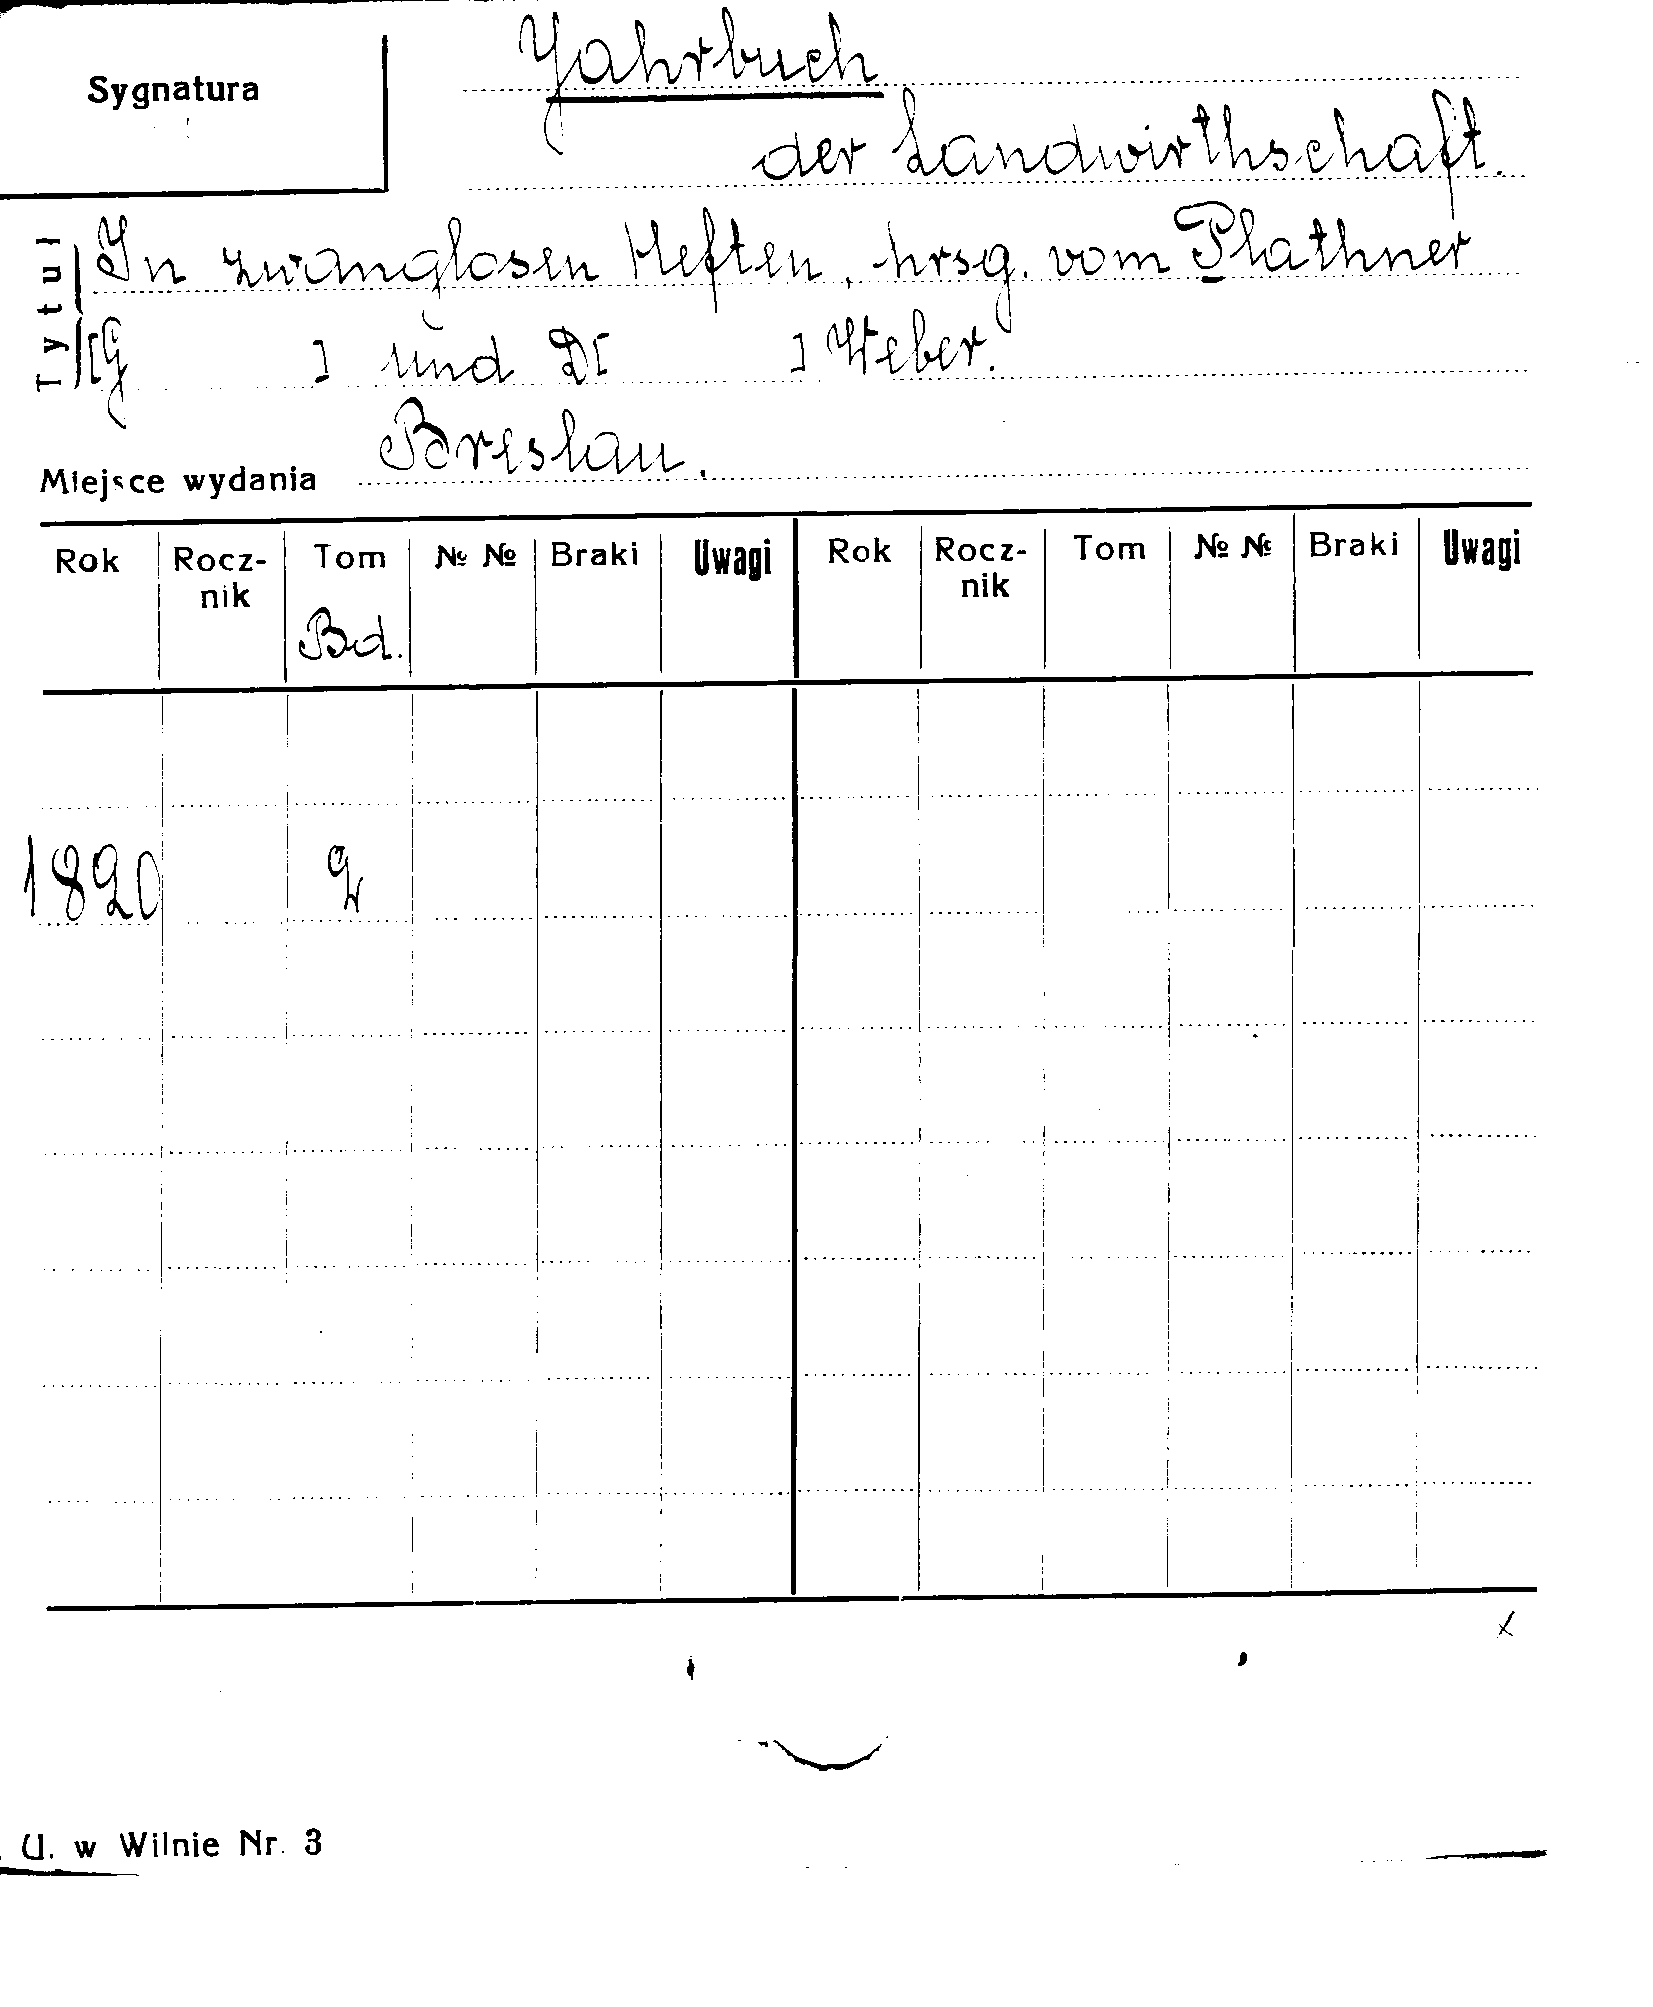 Sygnatura
Jahrbuch
der Landwirthschaft.
Tytuł
In zwanglosen Heften, hrsg. vom Plathner
[G ] und D[ ] Weber.
Miejsce wydania Breslau.
Rok Rocz-nik Tom № № Braki Uwagi Rok Rocz-nik Tom № № Braki Uwagi
Bd.
1820 2
x
U. w Wilnie Nr. 3